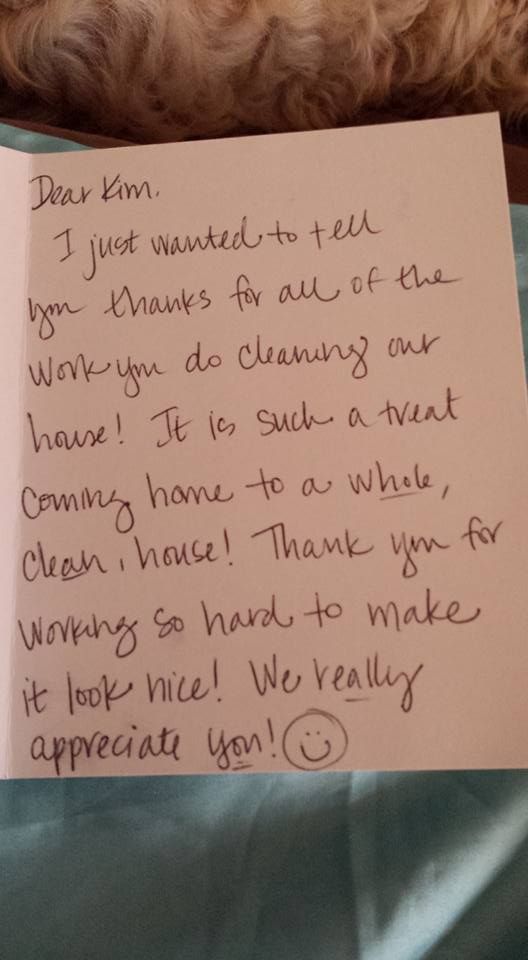 Dear Kim.
I just wanted to tell
you thanks for all of the
work you do cleaning our
house! It is such a treat
coming home to a whole,
clean, house! Thank you for
working so hard to make
it look nice! We really
appreciate you!